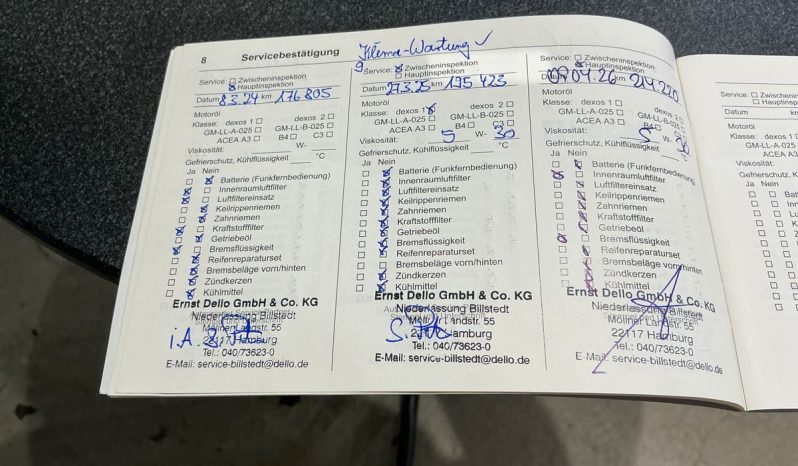 8 Servicebestätigung
Klima-Wartung ✓
Service: ☐ Zwischeninspektion
☒ Hauptinspektion
Datum 8.3.24 km 176 805
Motoröl
Klasse: dexos 1 ☐ dexos 2 ☐
GM-LL-A-025 ☐ GM-LL-B-025 ☐
ACEA A3 ☐ B4 ☐ C3 ☐
Viskosität: W-
Gefrierschutz, Kühlflüssigkeit °C
Ja Nein
Batterie (Funkfernbedienung)
Innenraumluftfilter
Luftfiltereinsatz
Keilrippenriemen
Zahnriemen
Kraftstofffilter
Getriebeöl
Bremsflüssigkeit
Reifenreparaturset
Bremsbeläge vorn/hinten
Zündkerzen
Kühlmittel
Ernst Dello GmbH & Co. KG
Niederlassung Billstedt
Möllner Landstr. 55
22117 Hamburg
i.A.
Tel.: 040/73623-0
E-Mail: service-billstedt@dello.de
9
Service: ☒ Zwischeninspektion
☐ Hauptinspektion
Datum 27.3.25 km 195 423
Motoröl
Klasse: dexos 1 ☒ dexos 2 ☐
GM-LL-A-025 ☐ GM-LL-B-025 ☐
ACEA A3 ☐ B4 ☐ C3 ☐
Viskosität: 5 W- 30
Gefrierschutz, Kühlflüssigkeit °C
Ja Nein
Batterie (Funkfernbedienung)
Innenraumluftfilter
Luftfiltereinsatz
Keilrippenriemen
Zahnriemen
Kraftstofffilter
Getriebeöl
Bremsflüssigkeit
Reifenreparaturset
Bremsbeläge vorn/hinten
Zündkerzen
Kühlmittel
Ernst Dello GmbH & Co. KG
Niederlassung Billstedt
Möllner Landstr. 55
22117 Hamburg
Tel.: 040/73623-0
E-Mail: service-billstedt@dello.de
Service: ☐ Zwischeninspektion
☒ Hauptinspektion
Datum 07.04.26 km 214.220
Motoröl
Klasse: dexos 1 ☐ dexos 2 ☐
GM-LL-A-025 ☐ GM-LL-B-025 ☐
ACEA A3 ☐ B4 ☐
Viskosität: 5 W- 30
Gefrierschutz, Kühlflüssigkeit °C
Ja Nein
Batterie (Funkfernbedienung)
Innenraumluftfilter
Luftfiltereinsatz
Keilrippenriemen
Zahnriemen
Kraftstofffilter
Getriebeöl
Bremsflüssigkeit
Reifenreparaturset
Bremsbeläge vorn/hinten
Zündkerzen
Kühlmittel
Ernst Dello GmbH & Co. KG
Niederlassung Billstedt
Möllner Landstr. 55
22117 Hamburg
Tel.: 040/73623-0
E-Mail: service-billstedt@dello.de
Service: ☐
☐
Datum km
Motoröl
Klasse: dexos 1 ☐
GM-LL-A-025 ☐
ACEA A3 ☐
Viskosität:
Gefrierschutz,
Ja Nein